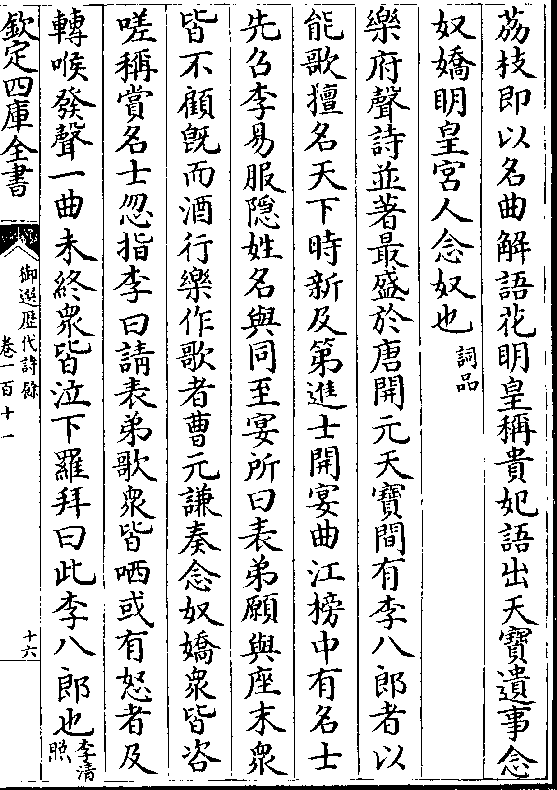 荔枝即以名曲解語花明皇稱貴妃語出天寶遺事念
奴嬌明皇宮人念奴也詞品
樂府聲詩並著最盛於唐開元天寶間有李八郎者以
能歌擅名天下時新及第進士開宴曲江榜中有名士
先召李易服隠姓名與同至宴所曰表弟願與座末衆
皆不顧旣而酒行樂作歌者曹元謙奏念奴嬌衆皆咨
嗟稱賞名士忽指李曰請表弟歌衆皆哂或有怒者及
轉喉發聲一曲未終衆皆泣下羅拜曰此李八郎也李清照
欽定四庫全書
御選歴代詩餘
卷一百十一
十六